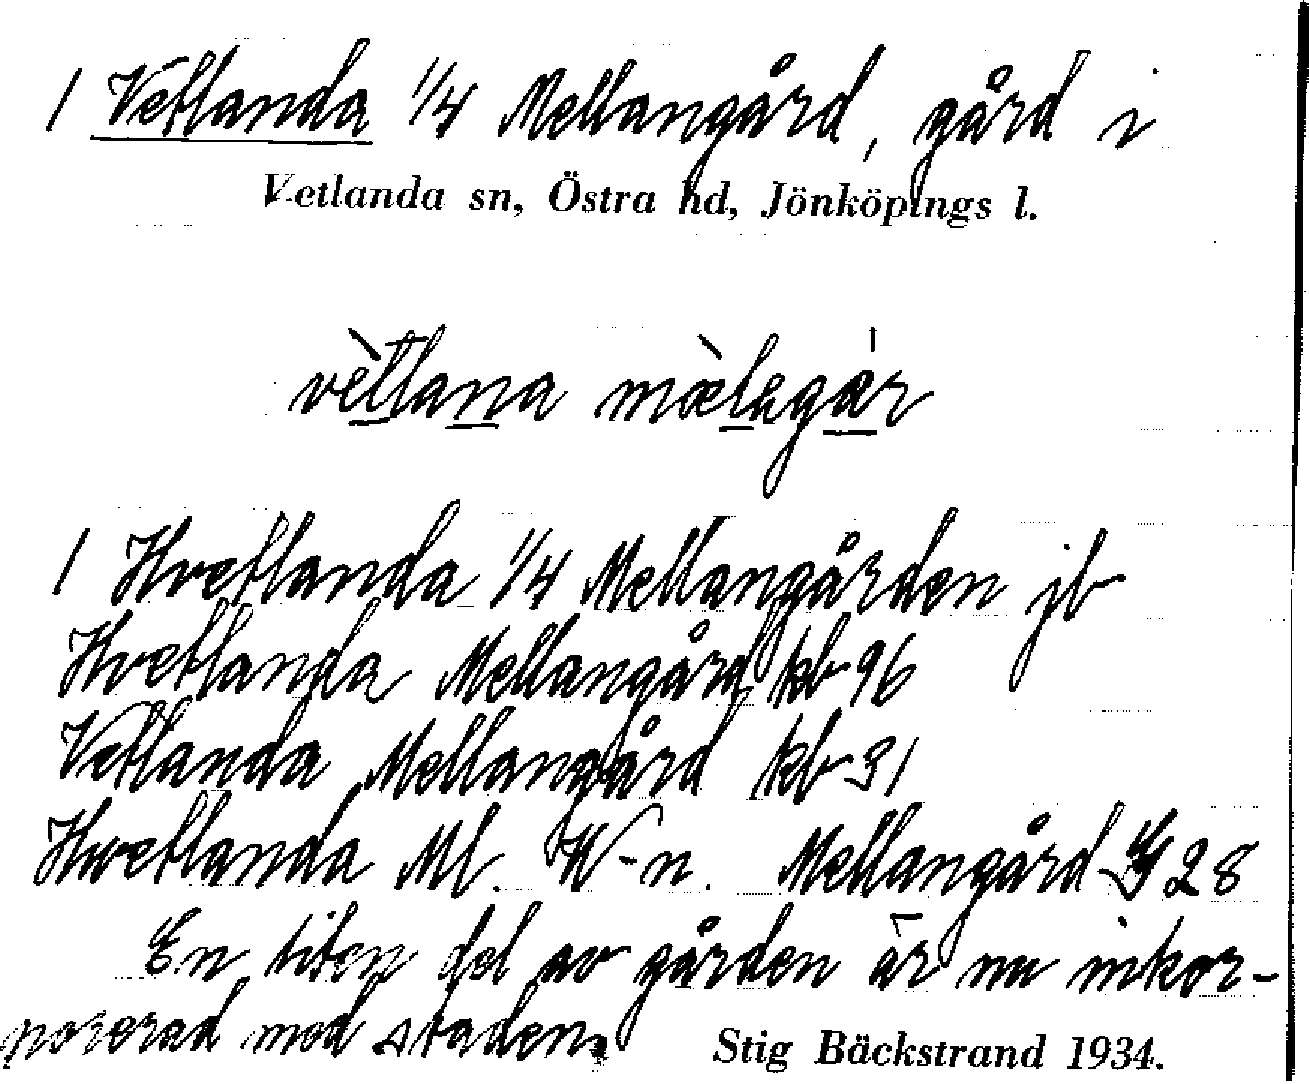 1 Vetlanda 1/4 Mellangård, gård i
Vetlanda sn, Östra hd, Jönköpings l.
vètlana
1 Hvetlanda 1/4 Mellangården jb
Hvetlanda Mellangård kb 96
Vetlanda Mellangård kb 31
Hvetlanda Ml. K-n. Mellangård 28
En liten del av gården är nu inkor-
porerad med staden.
Stig Bäckstrand 1934.